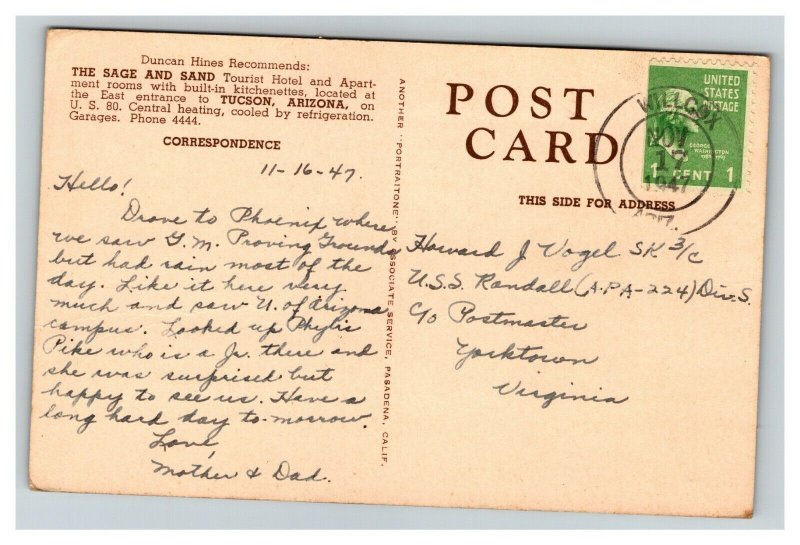 Duncan Hines Recommends:
THE SAGE AND SAND Tourist Hotel and Apart-
ment rooms with built-in kitchenettes, located at
the East entrance to TUCSON, ARIZONA, on
U. S. 80. Central heating, cooled by refrigeration.
Garages. Phone 4444.
CORRESPONDENCE
11-16-47.
Hello!
Drove to Phoenix where
we saw G.M. Proving Grounds
but had rain most of the
day. Like it here very
much and saw U. of Arizona
campus. Looked up Phylis
Pike who is a Jr. there and
she was surprised but
happy to see us. Have a
long hard day to-morrow
Love,
Mother & Dad.
ANOTHER "PORTRAITONE" BY ASSOCIATE SERVICE, PASADENA, CALIF.
POST
CARD
THIS SIDE FOR ADDRESS
UNITED
STATES
POSTAGE
GEORGE
WASHINGTON
1 CENT 1
WILLCOX
NOV
17
1947
ARIZ.
Howard J Vogel SK 3/C
U.S.S. Randall (A.P.A-224) Div. S.
C/o Postmaster
Yorktown
Virginia